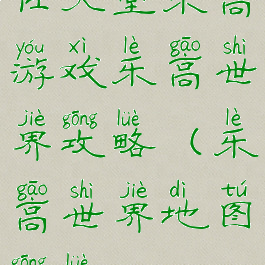 yóu xì lè gāo shì
游戏乐高世
jiè gōng lüè lè
界攻略（乐
gāo shì jiè dì tú
高世界地图
gōng lüè